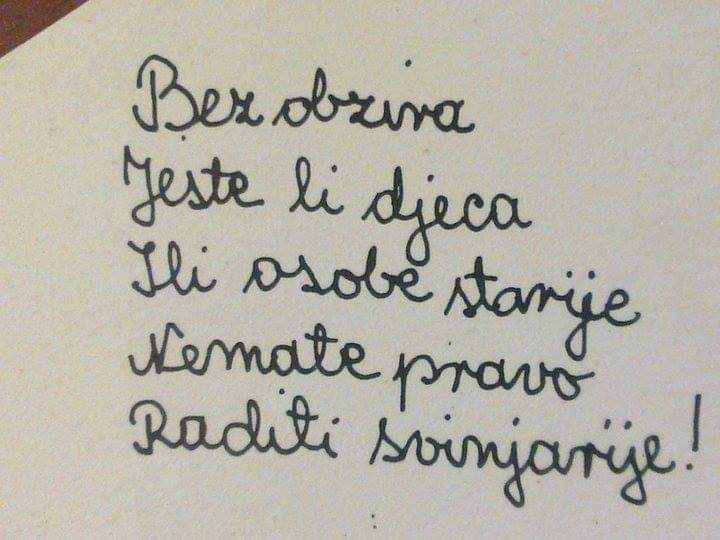 Bez obzira
Jeste li djeca
Ili osobe starije
Nemate pravo
Raditi svinjarije!